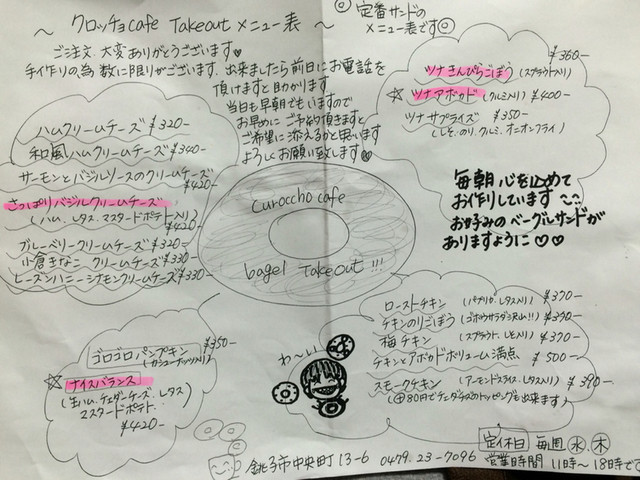 ～ クロッチョcafe Takeoutメニュー表 ～
ご注文、大変ありがとうございます♥
手作りの為、数に限りがございます。出来ましたら前日にお電話を
頂けますと助かります
当日も早朝でもいますので
お早めに ご予約頂きますと
ご希望に添えるかと思います
よろしくお願い致します♥
◎定番サンドの
メニュー表です◎
ハムクリームチーズ ¥320-
和風ハムクリームチーズ ¥340-
サーモンとバジルソースのクリームチーズ
¥420-
さっぱりバジルクリームチーズ
(ハム、レタス、マスタードポテト入り)
¥420-
ブルーベリークリームチーズ ¥320-
小倉きなこ クリームチーズ ¥330-
レーズンハニーシナモンクリームチーズ ¥330-
¥360-
ツナきんぴらごぼう (スプラウト入り)
☆ ツナアボカド (クルミ入り) ¥400-
ツナサプライズ ¥350-
(しそ、のり、クルミ、オニオンフライ)
毎朝心を込めて
お作りしています
お好みのベーグルサンドが
ありますように♡♡
Curoccho cafe
bagel Takeout!!!
ゴロゴロパンプキン ¥350-
(カシューナッツ入り)
☆ ナイスバランス
(生ハム、チェダーチーズ、レタス
マスタードポテト
¥420-
わ～い
ローストチキン (パプリカ、レタス入り) ¥370-
チキンのりごぼう (ゴボウサラダ沢山!!) ¥390-
梅チキン (スプラウト、しそ入り) ¥370-
チキンとアボカドボリューム満点 ¥500-
スモークチキン (アーモンドスライス、レタス入り) ¥390-
(⊕80円でチェダーチーズのトッピングも出来ます)
定休日 毎週 水 木
銚子市中央町13-6 0479.23-7096 営業時間 11時～18時まで